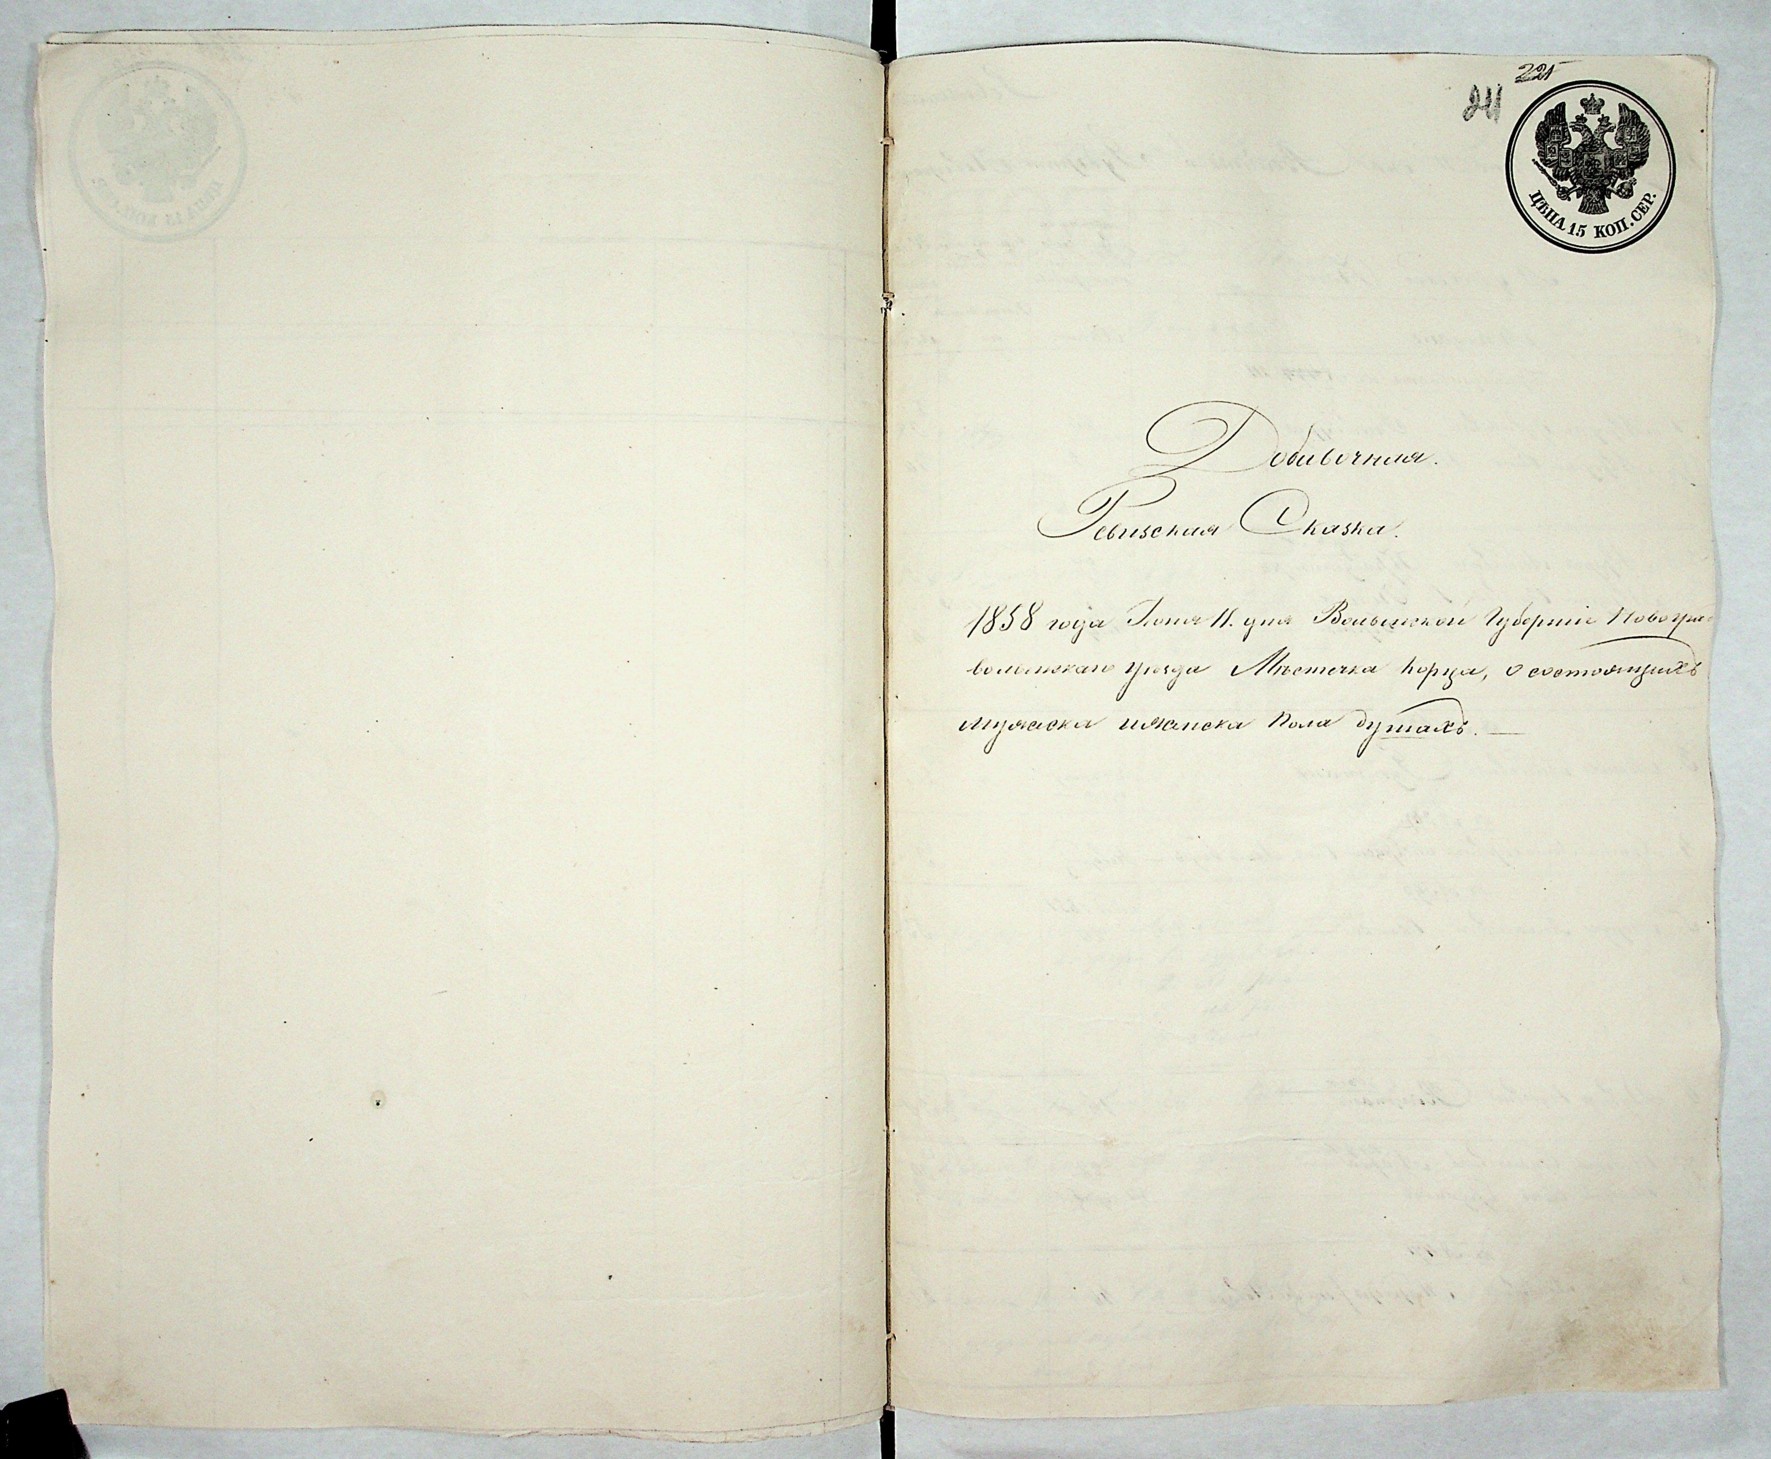 221
24
ЦѢНА 15 КОП. СЕР.
Добавочная.
Ревизская Сказка.
1858 года Июня 11. дня Волынской Губерніи Новогра=
волынскаго уѣзда Мѣстечка Корца, о состоящихъ
мужеска иженска Пола душахъ. —